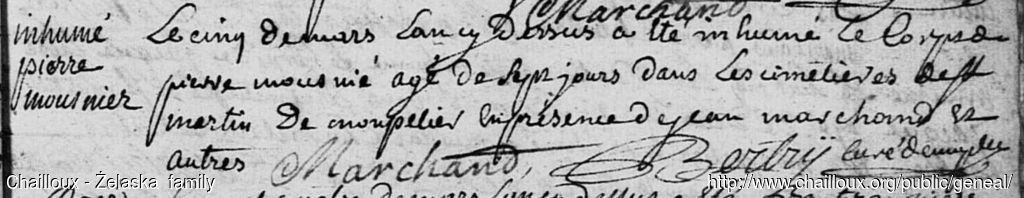 Marchand
inhumé
pierre
mousnier
Le cinq de mars Lan cy Dessus a ete inhumé Le Corps de
pierre mousnié agé de Sept jours dans Les cimetieres de st
martin De monpelier En présence de jean marchand Et
autres Marchand, Berbry Curé de
Chailloux - Żelaska family
http://www.chailloux.org/public/geneal/